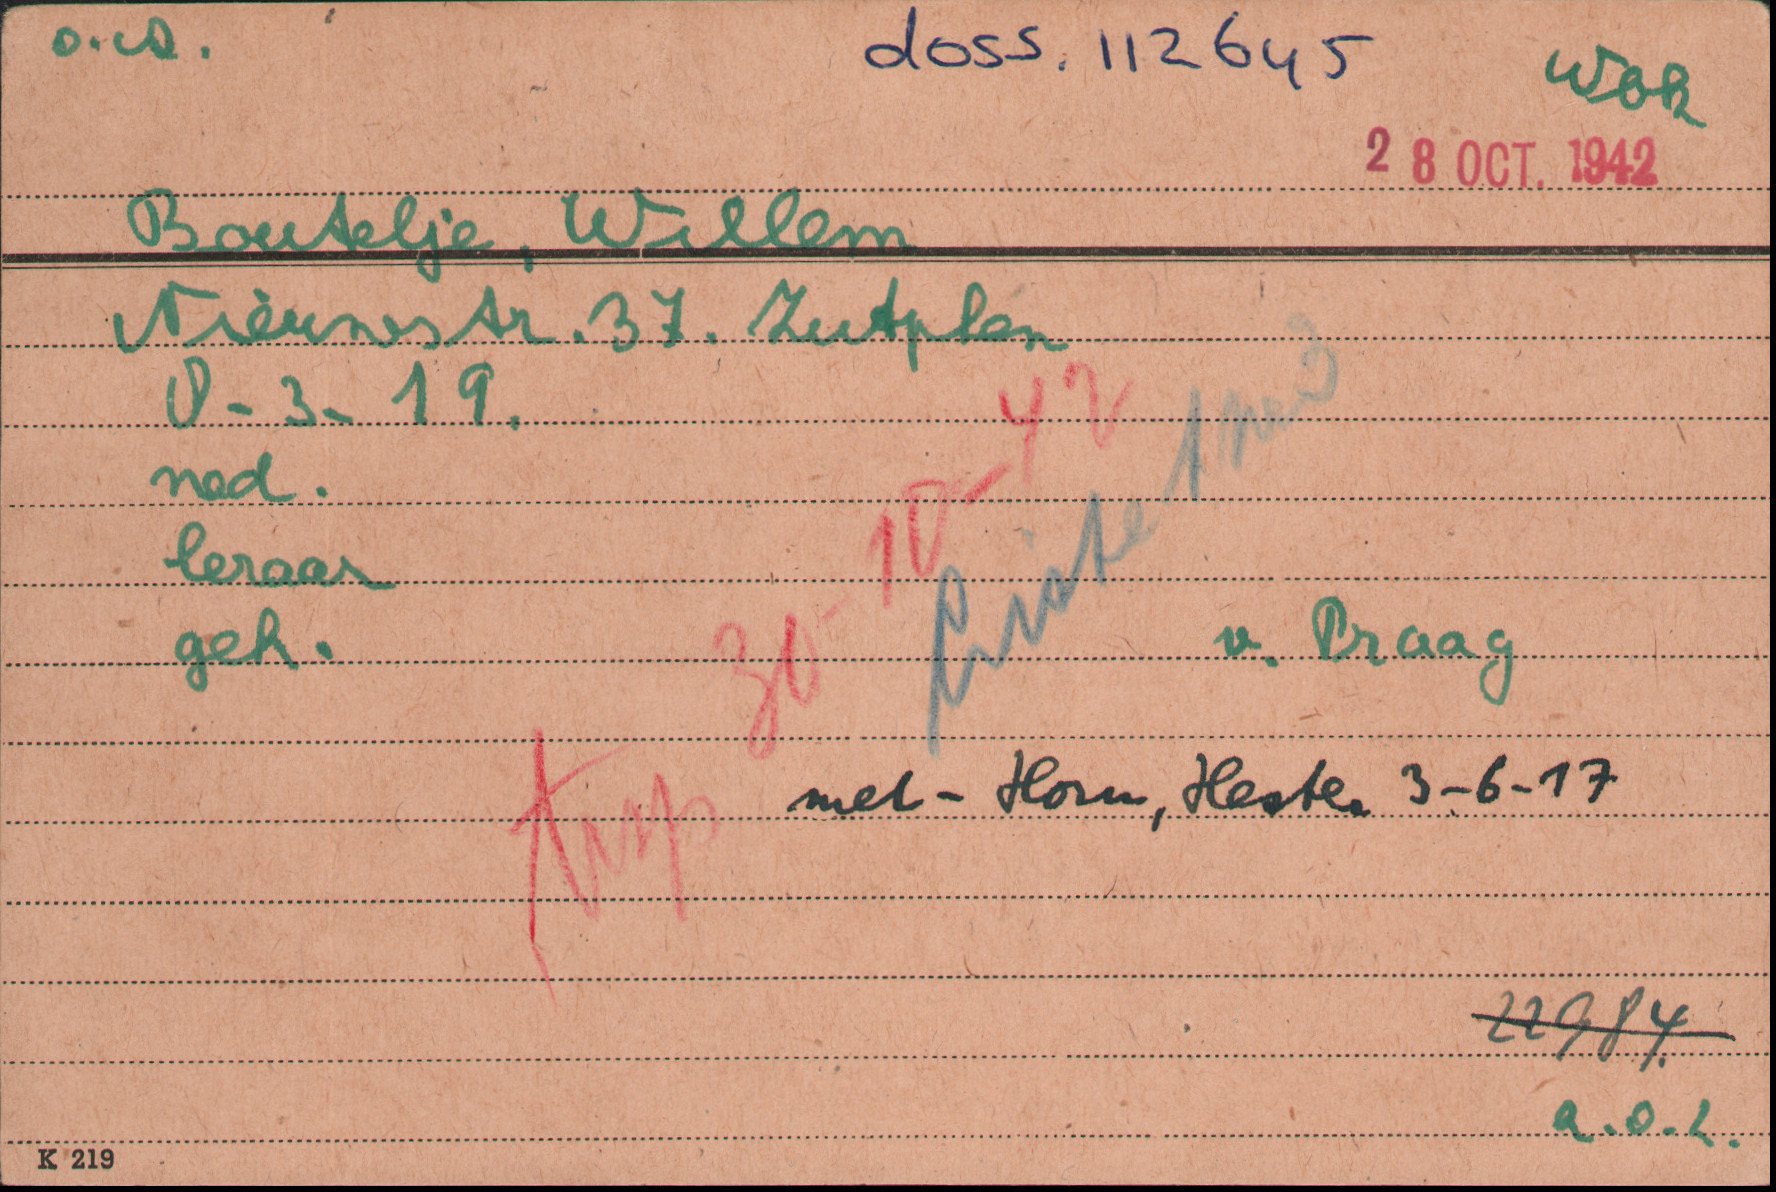 o.v.
doss. 112645
Wok
28 OCT. 1942
Boutelje, Willem
Nieuwstr. 37. Zutphen
8-3-19.
ned.
leraar
geh.
30-10-42
v. Praag
met - Horn, Hester 3-6-17
22984
a.o.L.
K 219